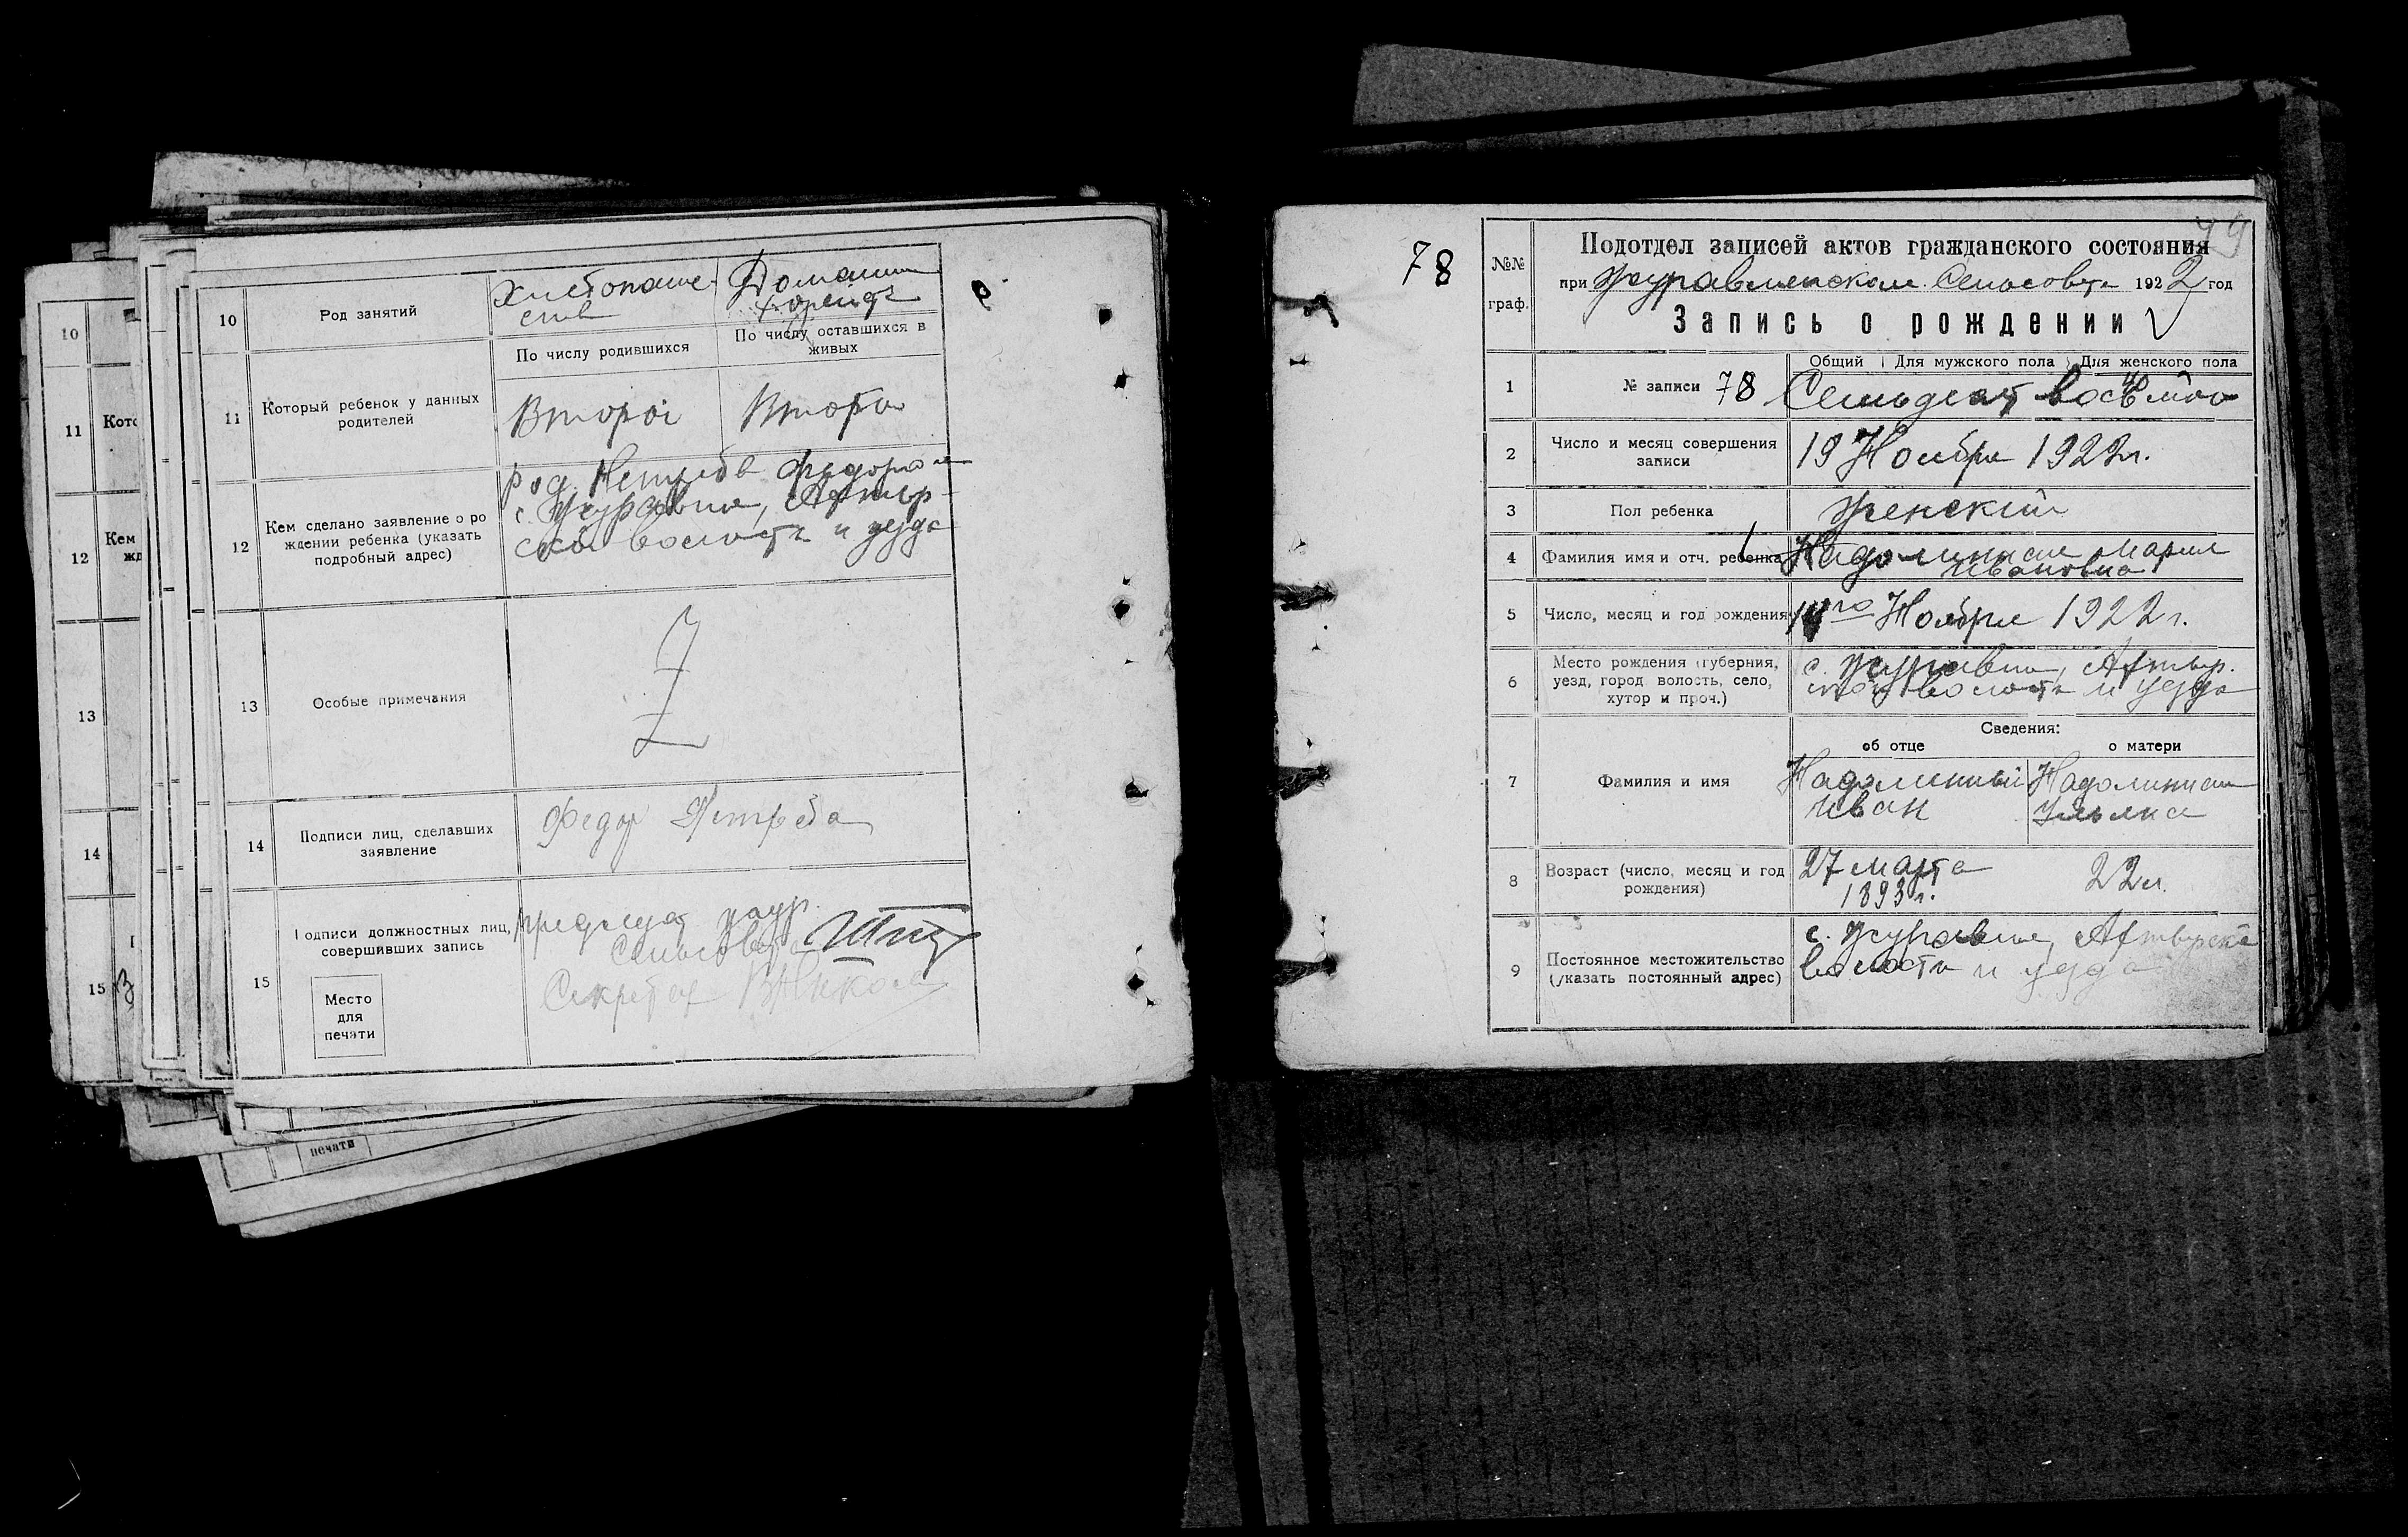 10
Род занятий
Хлебопаше-
ств
Домашн
По числу родившихся
По числу оставшихся в
живых
11
Который ребенок у данных
родителей
Второй
Второй
12
Кем сделано заявление о ро
ждении ребенка (указать
подробный адрес)
род. Нетреба Федором
с. Журавне, Ахтыр-
ской волости и уезда
13
Особые примечания
14
Подписи лиц, сделавших
заявление
Федор Нетреба
15
Подписи должностных лиц,
совершивших запись
Место
для
печати
Предсидат Жур.
Сельсовета
Секретар
10
11
Кото
12
Кем
жд
13
14
15
печати
78
49
№№
граф.
Подотдел записей актов гражданского состояния
при Журавленском Сельсовете 1922 год
Запись о рождении
1
№ записи 78
Общий Для мужского пола Для женского пола
Семьдесят восьмой
2
Число и месяц совершения
записи
19 Ноября 1922 г.
3
Пол ребенка
Женский
4
Фамилия имя и отч. ребенка
Надолинная Мария
Ивановна
5
Число, месяц и год рождения
14го Ноября 1922 г.
6
Место рождения (губерния,
уезд, город волость, село,
хутор и проч.)
с. Журавне, Ахтыр.
ской волости и уезда
Сведения:
об отце
о матери
7
Фамилия и имя
Надолинный
Иван
Надолинная
Ульяна
8
Возраст (число, месяц и год
рождения)
27 марта
1893 г.
22 л.
9
Постоянное местожительство
(указать постоянный адрес)
с. Журавне, Ахтырской
волости и уезда